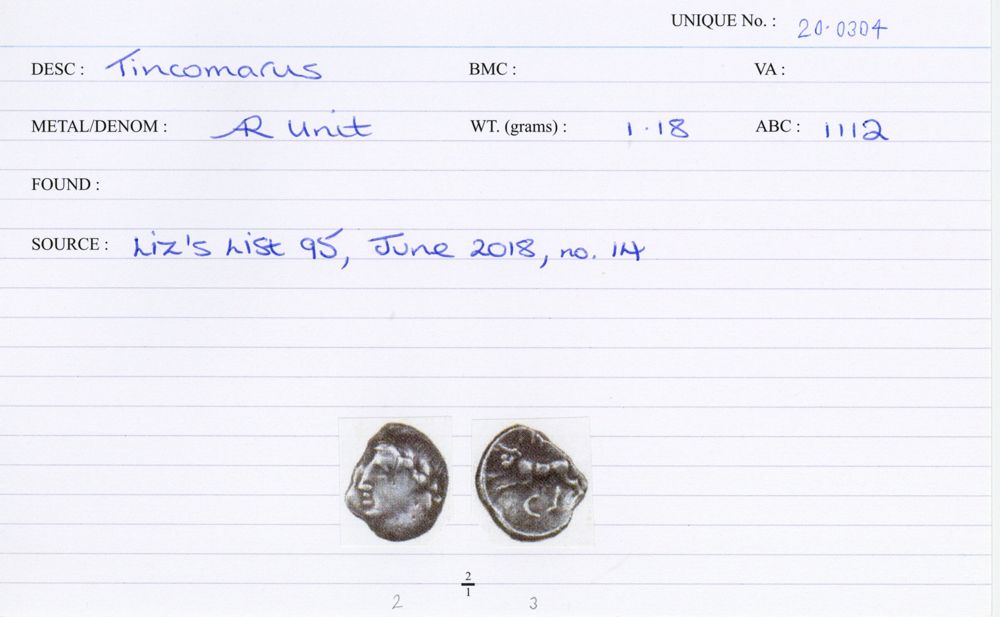 UNIQUE No. : 20·0304
DESC : Tincomarus BMC : VA :
METAL/DENOM : AR Unit WT. (grams) : 1·18 ABC : 1112
FOUND :
SOURCE : Liz's List 95, June 2018, no. 14
2
1
2 3